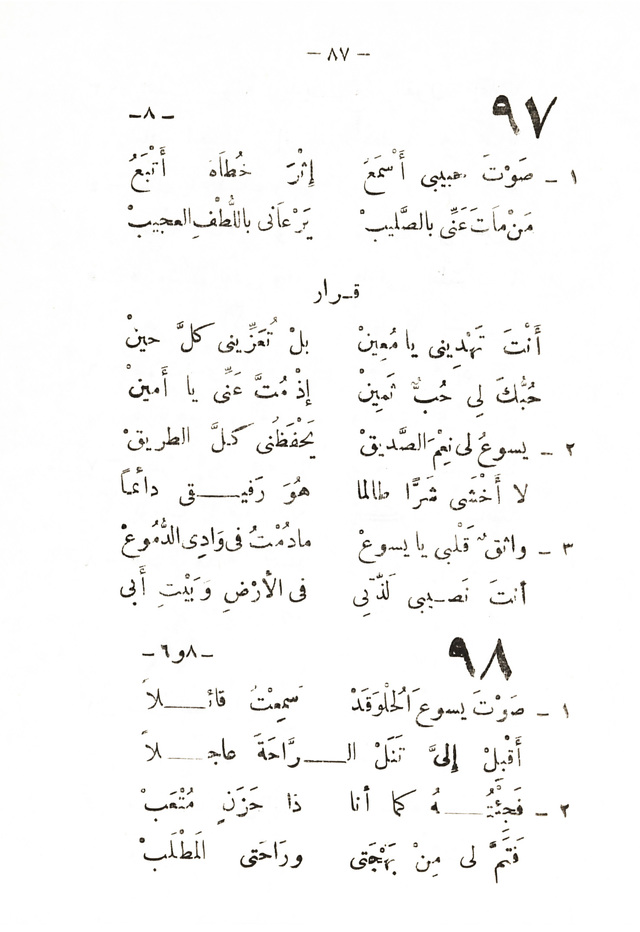 – ٨٧ –
٩٧
–٨–
١ – صَوْتَ حبيبى أَسْمَعَ إِثْرَ خُطَاهُ أَتْبَعُ
مَنْ مَاتَ عَنِّى بالصَّليبْ يَرْعَانى باللُّطْفِ العجيبْ
قـرار
أَنْتَ تَهْدِينى يا مُعِينْ بلْ تُعَزِّينى كلَّ حينْ
حُبُّكَ لِى حُبٌّ ثَمِينْ إِذْ مُتَّ عَنِّى يا أَمينْ
٢ – يسوعُ لى نِعْمَ الصَّديقْ يَحْفَظُنى كلَّ الطريقْ
لا أَخْشَى شَرًّا طالما هُوَ رَفيـــقى دائماً
٣ – واثقٌ قَلْبى يا يسوعْ مادُمْتُ فى وَادِى الدُّمُوعْ
أنتَ نَصـيبى لَذَّتِى فى الأَرْضِ وَبَيْتِ أَبى
٩٨
–٨و٦–
١ – صَوْتَ يسوعَ الْحلْوَ قَدْ سَمِعْتُ قائـــلاً
أَقْبِلْ إِلىَّ تَنَلْ الـــرَّاحَةَ عاجـــلاً
٢ – فَجِئْتُـــهُ كما أنا ذا حَزَنٍ مُتْعَبْ
فَتَمَّ لى مِنْ بَهْجَتى ورَاحَتى المَطْلَبْ